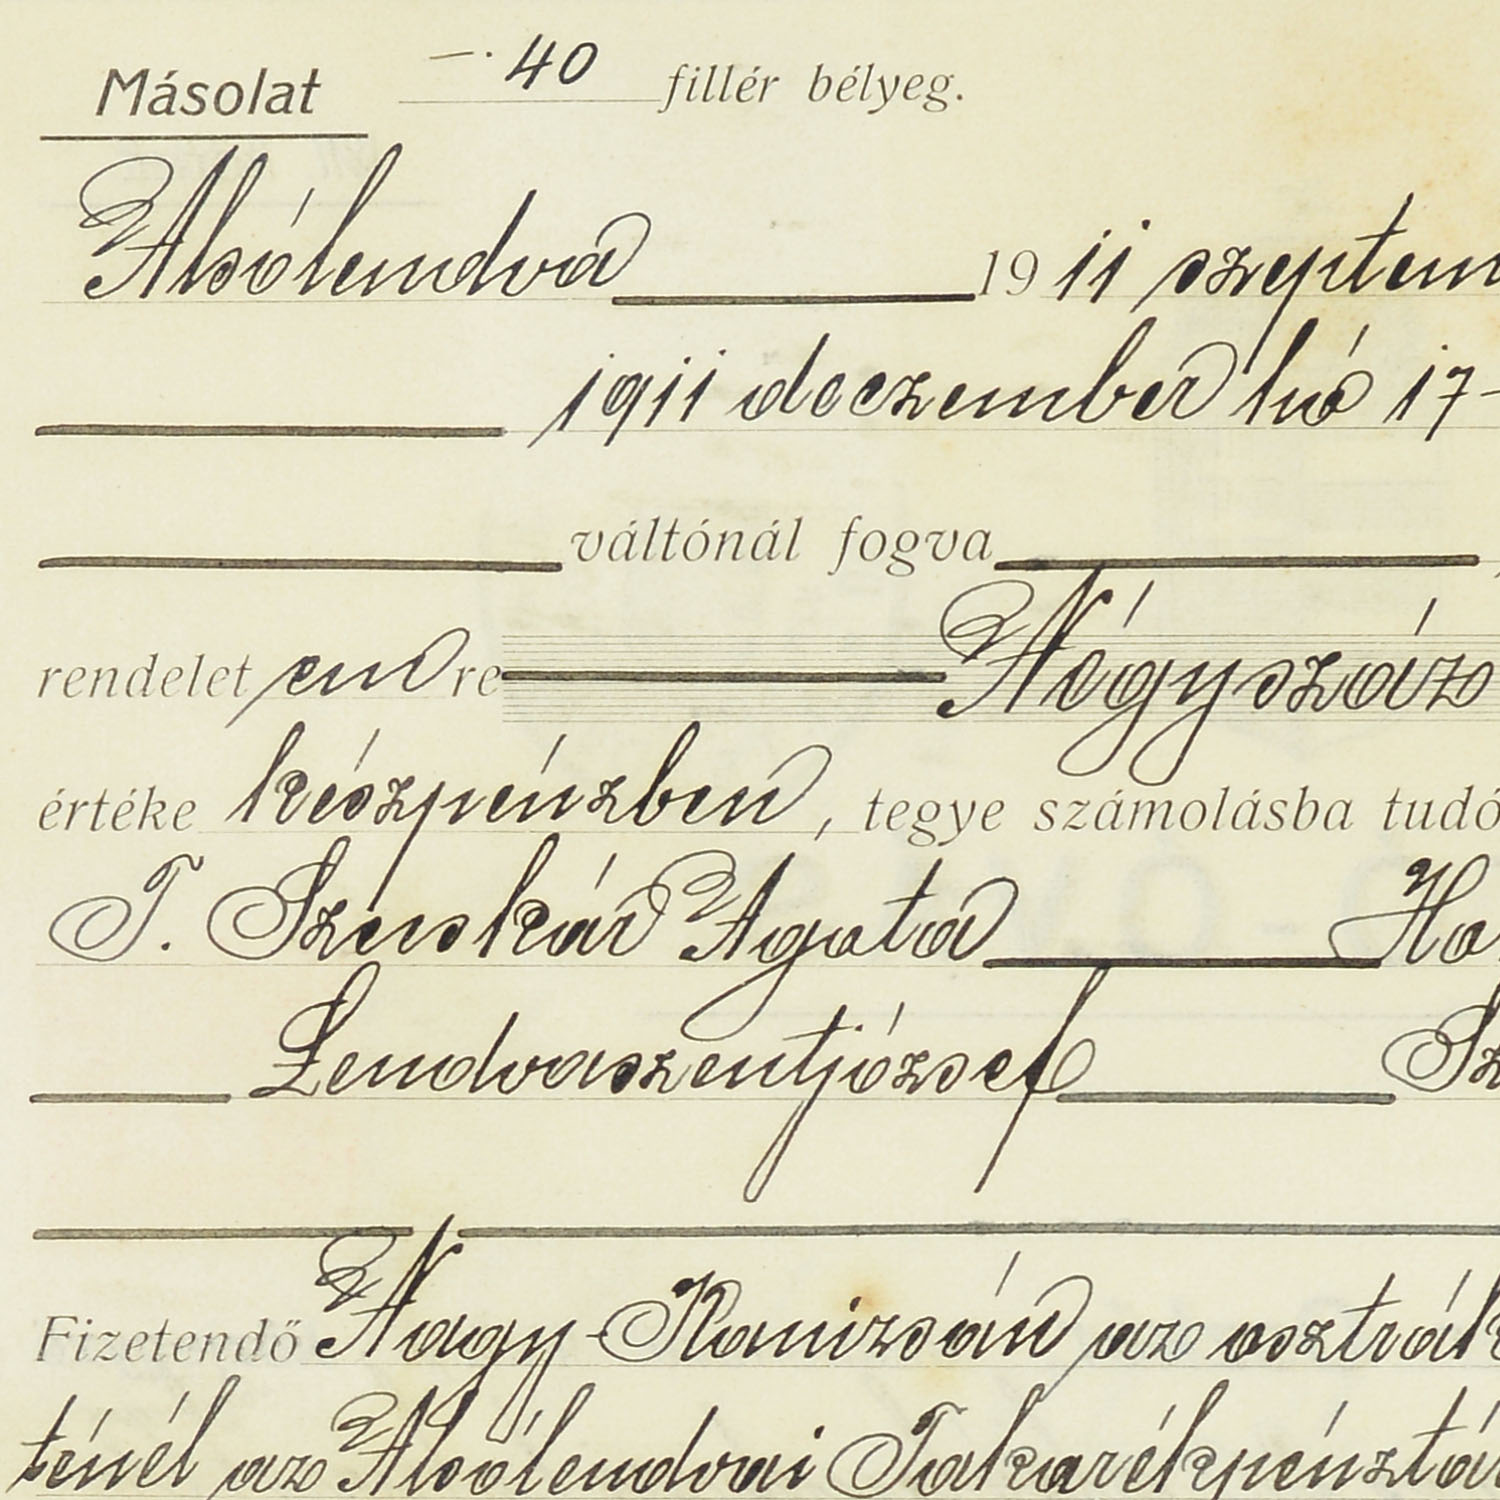 Másolat —.40 fillér bélyeg.
Alsólendva 1911 szeptem
1911 deczember hó 17-
váltónál fogva
rendelet en re Négyszáz
értéke készpénzben, tegye számolásba tudó
T. Szenskár Agata Ha
Lendvaszentjózsef Sz
Fizetendő Nagy-Kanizsán az osztrák
ténél az Alsólendvai Takarékpénztá